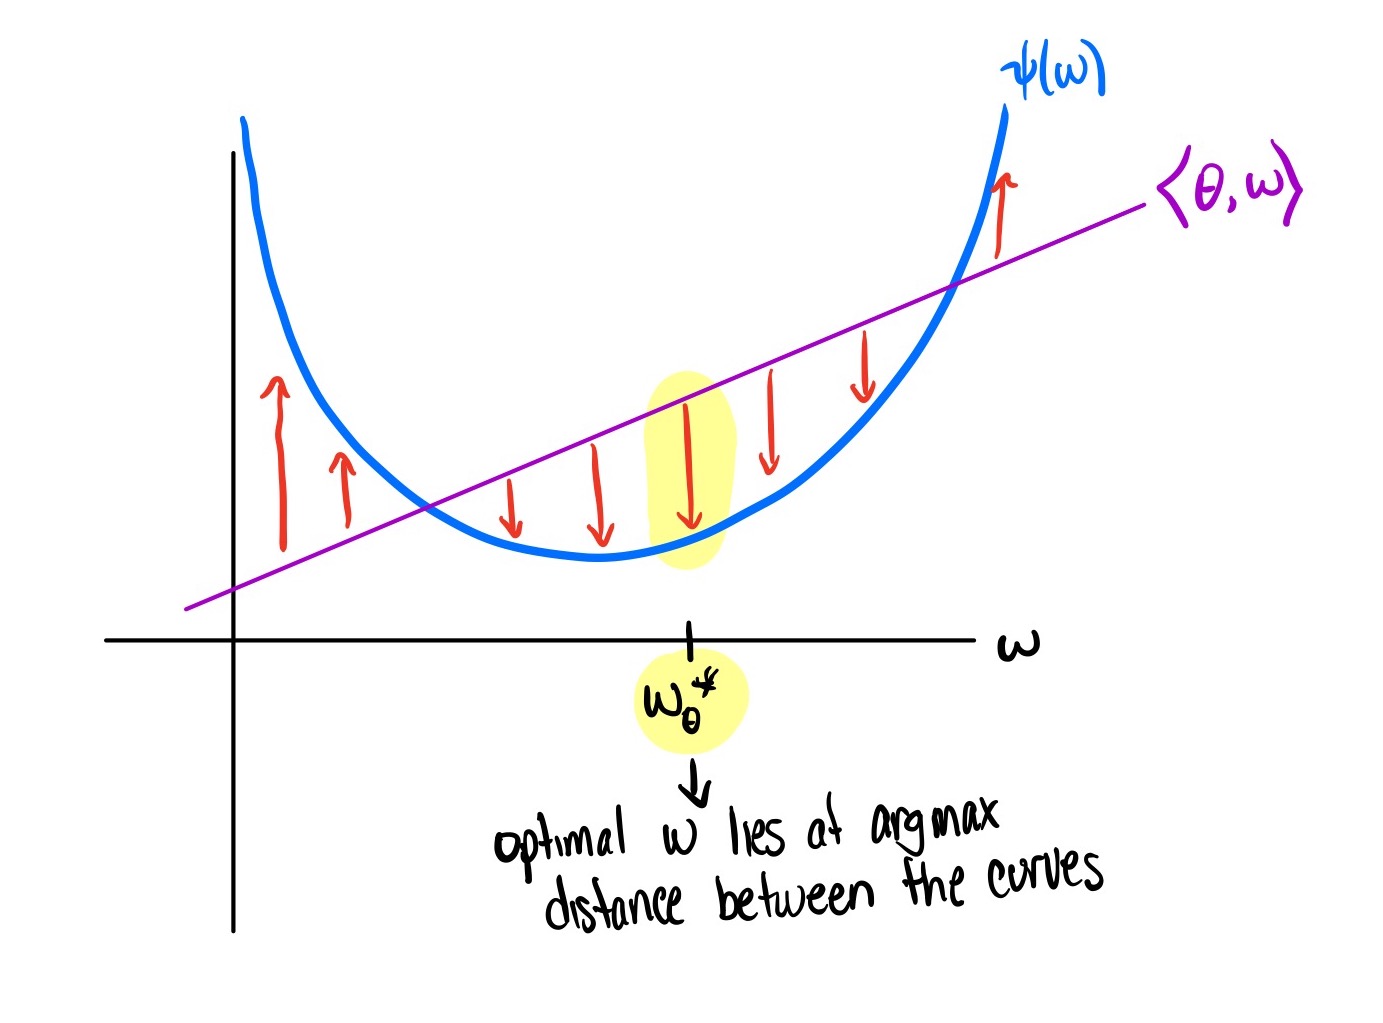 ψ(w)
⟨θ, w⟩
w
w_θ*
optimal w lies at argmax
distance between the curves